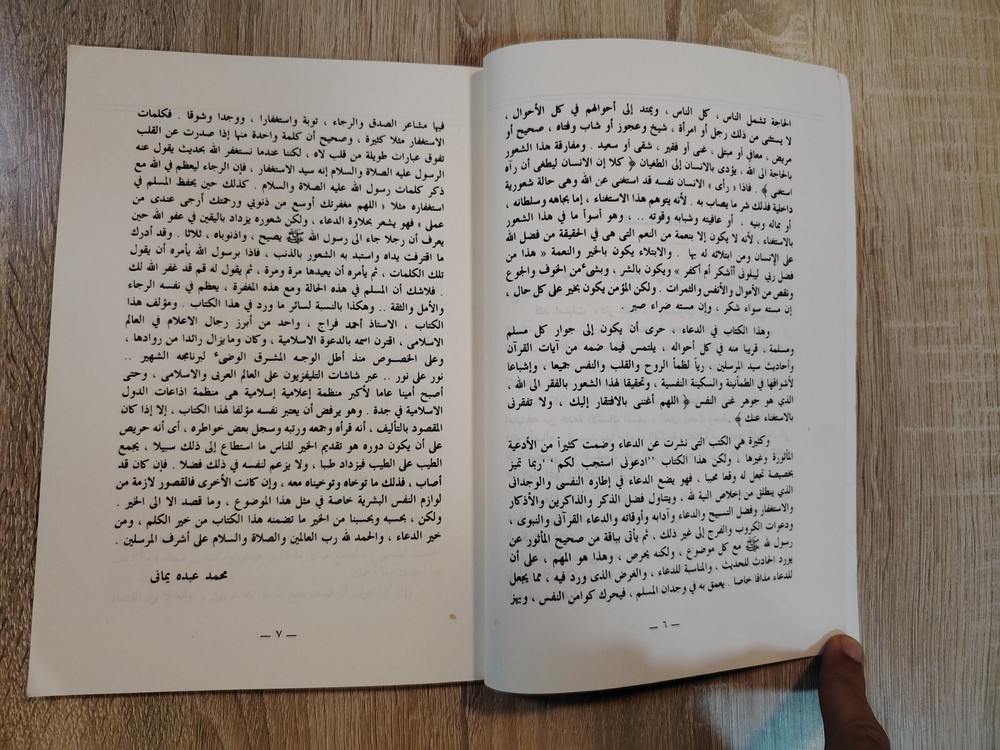 الحاجة تشمل الناس ، كل الناس ، ويمتد إلى أحوالهم في كل الأحوال ،
لا يستثنى من ذلك رجل أو امرأة ، شيخ وعجوز أو شاب وفتاه ، صحيح أو
مريض ، معافي أو مبتلى ، غنى أو فقير ، شقى أو سعيد . ومفارقة هذا الشعور
بالحاجة الى الله ، يؤدى بالانسان إلى الطغيان ﴿ كلا إن الانسان ليطغى أن رآه
استغنى ﴾ . فاذا « رأى » الانسان نفسه قد استغنى عن الله وهى حالة شعورية
داخلية فذلك شر ما يصاب به . لأنه يتوهم هذا الاستغناء ، إما بجاهه وسلطانه ،
أو بماله وبنيه . أو عافيته وشبابه وقوته .. ، وهو أسوأ ما في هذا الشعور
بالاستغناء ، لأنه لا يكون إلا بنعمة من النعم التى هى في الحقيقة من فضل الله
على الإنسان ومن ابتلائه له بها . والابتلاء يكون بالخير والنعمة « هذا من
فضل ربي ليبلونى أأشكر أم أكفر » ويكون بالشر ، وبشىء من الخوف والجوع
ونقص من الأموال والأنفس والثمرات . ولكن المؤمن يكون بخير على كل حال ،
إن مسته سواء شكر ، وإن مسته ضراء صبر .
وهذا الكتاب في الدعاء ، حرى أن يكون إلى جوار كل مسلم
ومسلمة ، قريبا منه في كل أحواله ، يلتمس فيما ضمه من آيات القرآن
وأحاديث سيد المرسلين ، رياً لظمأ الروح والقلب والنفس جميعا ، وإشباعا
لأشواقها في الطمأنينة والسكينة النفسية ، وتحقيقا هذا الشعور بالفقر الى الله ،
الذي هو جوهر غنى النفس ﴿ اللهم أغننى بالافتقار إليك ، ولا تفقرنى
بالاستغناء عنك ﴾ .
وكثيرة هي الكتب التى نشرت عن الدعاء وضمت كثيراً من الأدعية
المأثورة وغيرها ، ولكن هذا الكتاب ''ادعونى استجب لكم'' ربما تميز
بخصيصة تجعل له وقعا محببا ، فهو يضع الدعاء في إطاره النفسى والوجدانى
الذي ينطلق من إخلاص النية لله ، ويتناول فضل الذكر والذاكرين والأذكار
والاستغفار وفضل التسبيح والدعاء وآدابه وأوقاته والدعاء القرآنى والنبوى ،
ودعوات الكروب والفرج إلى غير ذلك ، ثم يأتى بباقة من صحيح المأثور عن
رسول الله ﷺ مع كل موضوع ، ولكنه يحرص ، وهذا هو المهم ، على أن
يورد الحادث للحديث ، والمناسبة للدعاء ، والغرض الذى ورد فيه ، مما يجعل
للدعاء مذاقا خاصا . يعمق به في وجدان المسلم ، فيحرك كوامن النفس ، ويهز
— ٦ —
فيها مشاعر الصدق والرجاء ، توبة واستغفارا ، ووجدا وشوقا . فكلمات
الاستغفار مثلا كثيرة ، وصحيح أن كلمة واحدة منها إذا صدرت عن القلب
تفوق عبارات طويلة من قلب لاه ، لكننا عندما نستغفر الله بحديث يقول عنه
الرسول عليه الصلاة والسلام إنه سيد الاستغفار ، فإن الرجاء ليعظم في الله مع
ذكر كلمات رسول الله عليه الصلاة والسلام . كذلك حين يحفظ المسلم في
استغفاره مثلا « اللهم مغفرتك أوسع من ذنوبي ورحمتك أرجى عندى من
عملى » فهو يشعر بحلاوة الدعاء ، ولكن شعوره يزداد باليقين في عفو الله حين
يعرف أن رجلا جاء الى رسول الله ﷺ يصيح ، واذنوباه ، ثلاثا . وقد أدرك
ما اقترفت يداه واستبد به الشعور بالذنب ، فاذا برسول الله يأمره أن يقول
تلك الكلمات ، ثم يأمره أن يعيدها مرة ومرة ، ثم يقول له قم قد غفر الله لك
. فلاشك أن المسلم في هذه الحالة ومع هذه المغفرة ، يعظم في نفسه الرجاء
والأمل والثقة .. وهكذا بالنسبة لسائر ما ورد في هذا الكتاب . ومؤلف هذا
الكتاب ، الاستاذ أحمد فراج ، واحد من أبرز رجال الاعلام في العالم
الاسلامى ، اقترن اسمه بالدعوة الاسلامية ، وكان ومايزال رائدا من روادها ،
وعلى الخصوص منذ أطل الوجه المشرق الوضىء لبرنامجه الشهير ..
نور على نور .. عبر شاشات التليفزيون على العالم العربى والاسلامى ، وحتى
أصبح أمينا عاما لأكبر منظمة إعلامية إسلامية هى منظمة اذاعات الدول
الاسلامية في جدة . وهو يرفض أن يعتبر نفسه مؤلفا لهذا الكتاب ، إلا إذا كان
المقصود بالتأليف ، أنه قرأه وجمعه ورتبه وسجل بعض خواطره ، أى أنه حريص
على أن يكون دوره هو تقديم الخير للناس ما استطاع إلى ذلك سبيلا ، يجمع
الطيب على الطيب فيزداد طيبا ، ولا يزعم لنفسه في ذلك فضلا . فإن كان قد
أصاب ، فذلك ما توخاه وتوخيناه معه ، وإن كانت الأخرى فالقصور لازمة من
لوازم النفس البشرية خاصة في مثل هذا الموضوع ، وما قصد الا الى الخير .
ولكن ، بحسبه وبحسبنا من الخير ما تضمنه هذا الكتاب من خير الكلم ، ومن
خير الدعاء ، والحمد لله رب العالمين والصلاة والسلام على أشرف المرسلين .
محمد عبده يمانى
— ٧ —